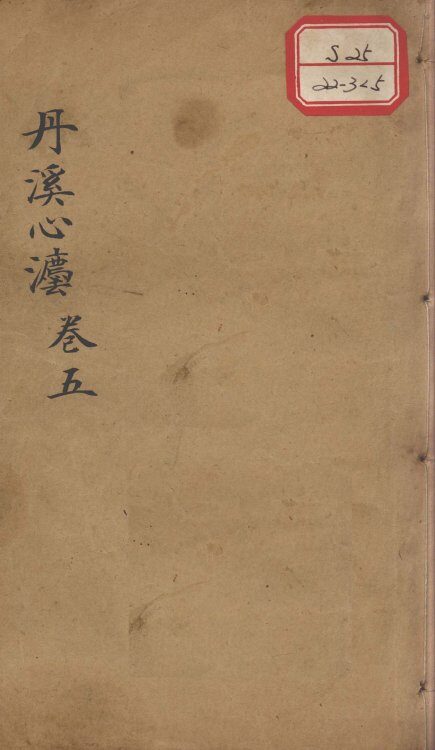 丹溪心灋
卷五
S 25
22-325